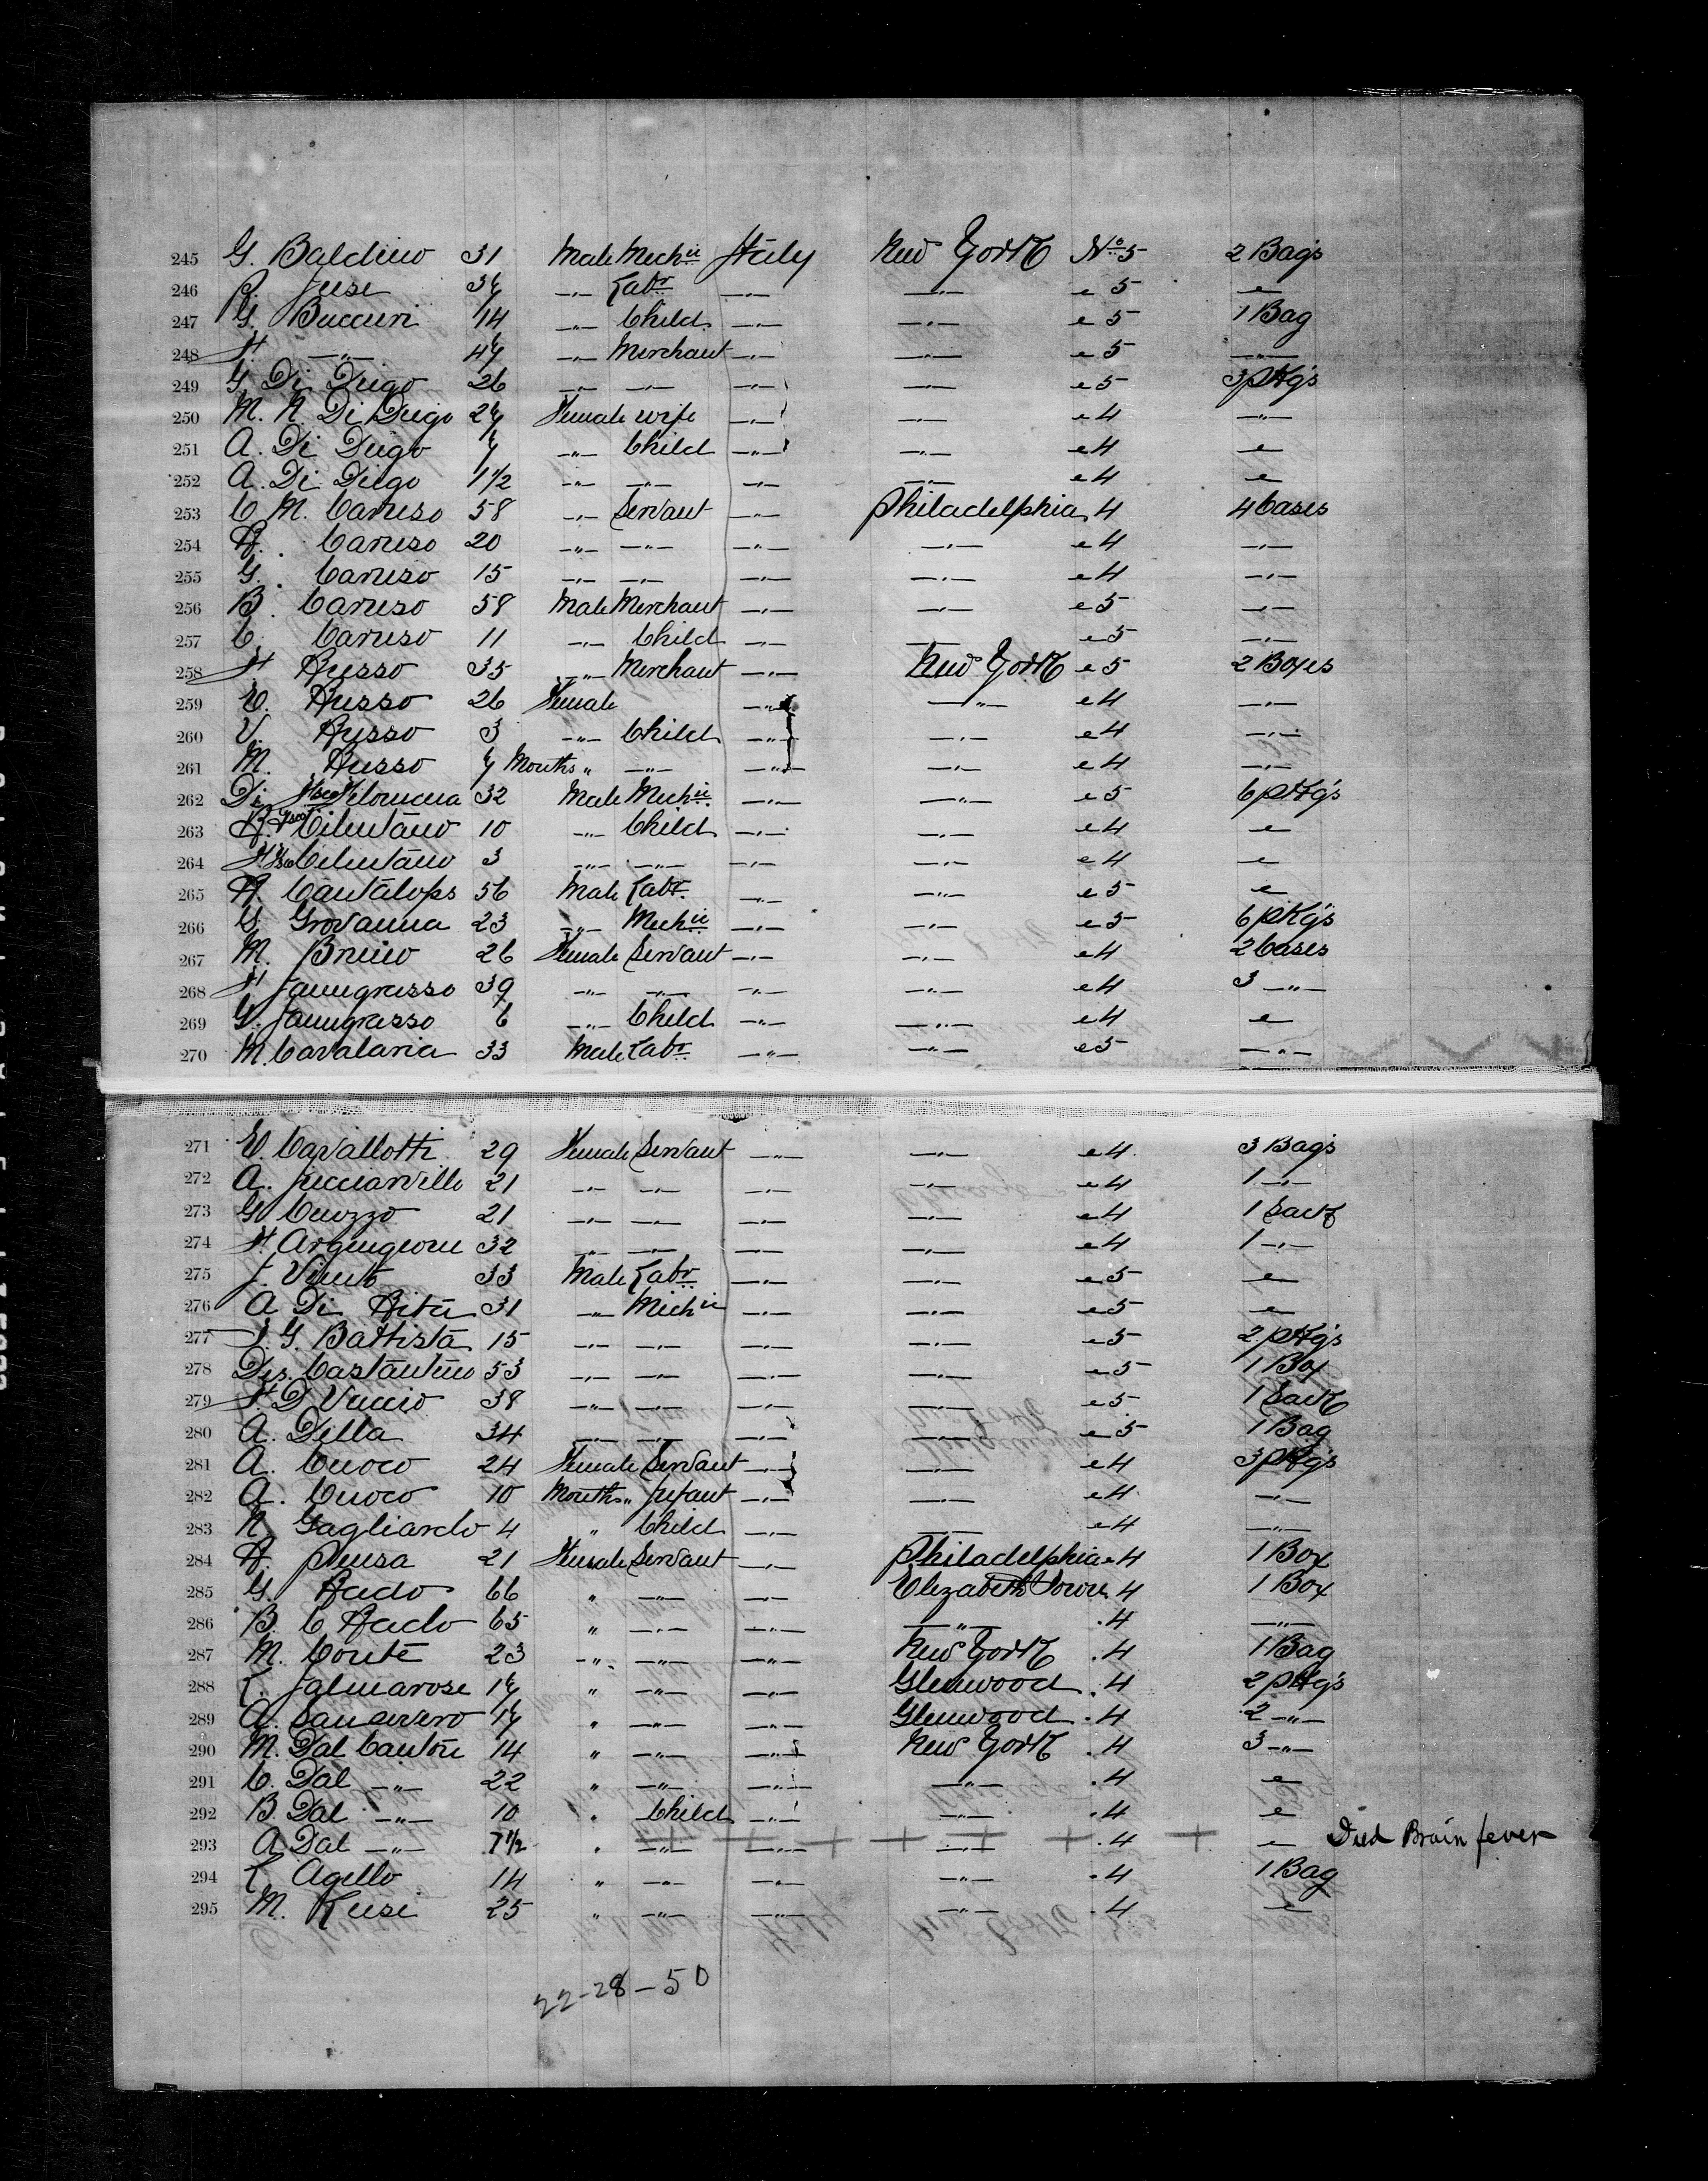 245 G. Baldino 31 Male Mechic Italy New York No 5 2 Bags
246 Jusi 37 -"- Labr -"- -"- e 5 e
247 G. Buccuri 14 -"- Child -"- -"- e 5 1 Bag
248 F. -"- 47 -"- Merchant -"- -"- e 5 -"-
249 G. Di Diego 26 -"- -"- -"- -"- e 5 3 pKg's
250 M. R. Di Diego 27 Female wife -"- -"- e 4 -"-
251 A. Di Diego 7 -"- Child -"- -"- e 4 e
252 A. Di Diego 1 1/2 -"- -"- -"- -"- e 4 e
253 C. M. Caruso 58 -"- Servant -"- Philadelphia 4 4 Cases
254 R. Caruso 20 -"- -"- -"- -"- e 4 -"-
255 G. Caruso 15 -"- -"- -"- -"- e 4 -"-
256 B. Caruso 58 Male Merchant -"- -"- e 5 -"-
257 C. Caruso 11 -"- Child -"- -"- e 5 -"-
258 F. Russo 35 -"- Merchant -"- New York e 5 2 Boxes
259 E. Russo 26 Female -"- -"- e 4 -"-
260 V. Russo 3 -"- Child -"- -"- e 4 -"-
261 M. Russo 7 Months " -"- -"- -"- e 4 -"-
262 Di Filomena 32 Male Mechic -"- -"- e 5 6 pKg's
263 R. Cilentano 10 -"- Child -"- -"- e 4 e
264 F. Cilentano 3 -"- -"- -"- -"- e 4 e
265 R. Cantalops 56 Male Labr -"- -"- e 5 e
266 G. Giovanna 23 -"- Mechic -"- -"- e 5 6 pKg's
267 M. Bruno 26 Female Servant -"- -"- e 4 2 Cases
268 F. Janngrasso 39 -"- -"- -"- -"- e 4 3 -"-
269 G. Janngrasso 6 -"- Child -"- -"- e 4 e
270 M. Cavalaria 33 Male Labr -"- -"- e 5 -"-
271 E. Cavallotti 29 Female Servant -"- -"- e 4 3 Bags
272 A. 21 -"- -"- -"- -"- e 4 1 -"-
273 G. Cuozzo 21 -"- -"- -"- -"- e 4 1 Sack
274 F. 32 -"- -"- -"- -"- e 4 1 -"-
275 J. Vinto 33 Male Labr -"- -"- e 5 e
276 A Di Rita 31 -"- Mechic -"- -"- e 5 e
277 J. G. Battista 15 -"- -"- -"- -"- e 5 2 pKg's
278 Des. Castantino 53 -"- -"- -"- -"- e 5 1 Box
279 F. D Vuccio 38 -"- -"- -"- -"- e 5 1 Sack
280 A. Della 34 -"- -"- -"- -"- e 5 1 Bag
281 A. Cuoco 24 Female Servant -"- -"- e 4 3 pKg's
282 A. Cuoco 10 Months " Infant -"- -"- e 4 -"-
283 N. Gagliardo 4 " Child -"- -"- e 4 -"-
284 R. Pensa 21 Female Servant -"- Philadelphia e 4 1 Box
285 G. Rado 66 " -"- -"- Elizabeth Town 4 1 Box
286 B. C Rado 65 " -"- -"- -"- . 4 -"-
287 M. Conte 23 -"- -"- -"- New York . 4 1 Bag
288 L. Jalmarose 17 " -"- -"- Glenwood . 4 2 pKg's
289 A. Sanseverro 17 " -"- -"- Glenwood . 4 2 -"-
290 M. Dal Canton 14 " -"- -"- New York . 4 3 -"-
291 C. Dal -"- 22 " -"- -"- -"- . 4 e
292 B. Dal -"- 10 " Child -"- -"- . 4 e
293 A. Dal -"- 7 1/2 " -"- -"- -"- . 4 e Died Brain fever
294 L Agello 14 " -"- -"- -"- . 4 1 Bag
295 M. Kusi 25 " -"- -"- -"- . 4 e
22-28-50